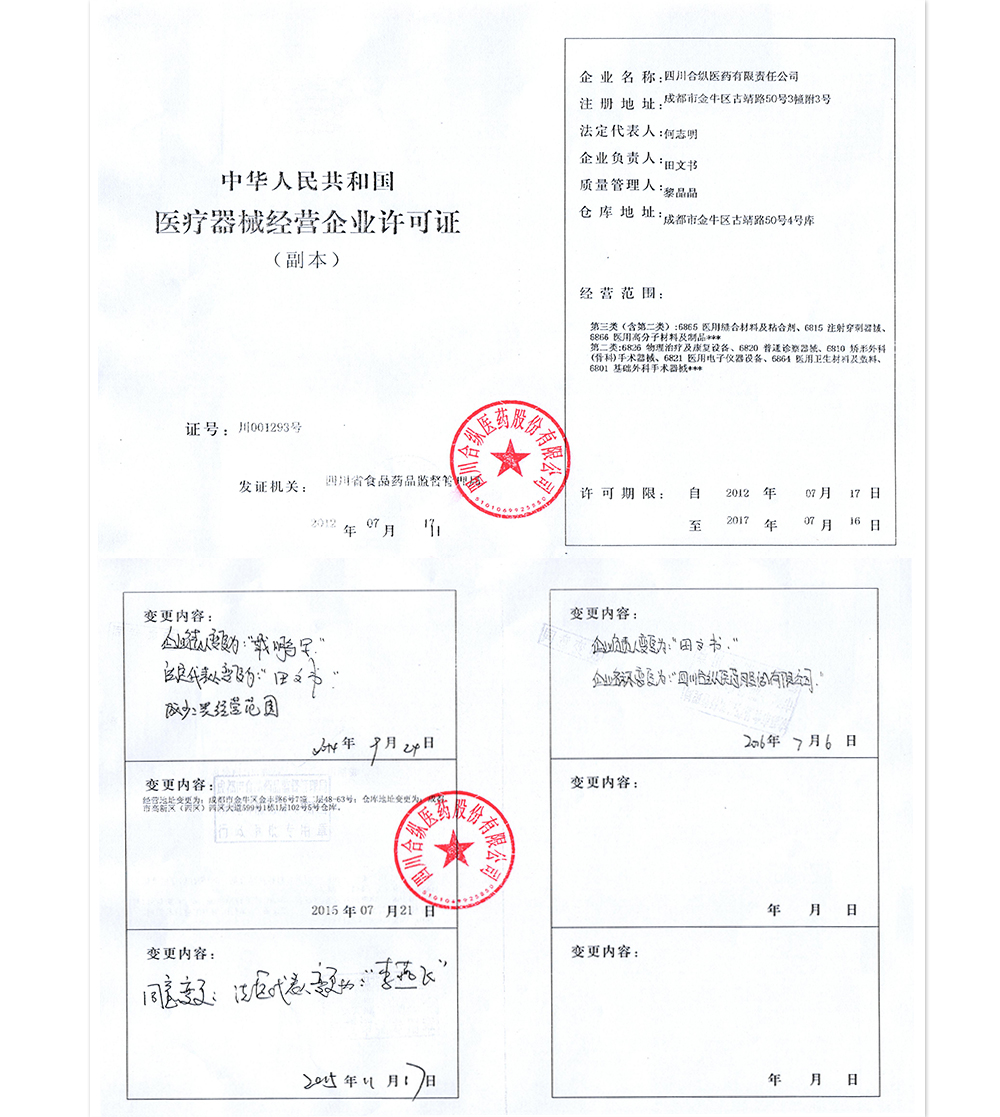 中华人民共和国
医疗器械经营企业许可证
（副本）
证号：川001293号
发证机关：四川省食品药品监督管理局
2012 年 07 月 17 日
四川合纵医药股份有限公司
5101069925850
企业名称：四川合纵医药有限责任公司
注册地址：成都市金牛区古靖路50号3幢附3号
法定代表人：何志明
企业负责人：田文书
质量管理人：黎晶晶
仓库地址：成都市金牛区古靖路50号4号库
经营范围：
第三类（含第二类）:6865 医用缝合材料及粘合剂、6815 注射穿刺器械、
6866 医用高分子材料及制品***
第二类:6826 物理治疗及康复设备、6820 普通诊察器械、6810 矫形外科
(骨科)手术器械、6821 医用电子仪器设备、6864 医用卫生材料及敷料、
6801 基础外科手术器械***
许可期限：自 2012 年 07月 17 日
至 2017 年 07 月 16 日
变更内容：
企业负责人变更为："戴鹏
法定代表人变更为："田文书"
减少二类经营范围
2014年 9月24日
变更内容：
经营地址变更为：成都市金牛区金丰路6号7幢 层48-63号；仓库地址变更为：成都
市高新区（西区）西区大道599号1栋1层102号5号仓库。
2015年07 月21 日
四川合纵医药股份有限公司
5101069925850
变更内容：
同意变更：法定代表人变更为："李燕飞"
2015年11月17日
变更内容：
企业负责人变更为："田文书."
企业名称变更为："四川合纵医药股份有限公司."
2016年 7月6 日
变更内容：
年 月 日
变更内容：
年 月 日